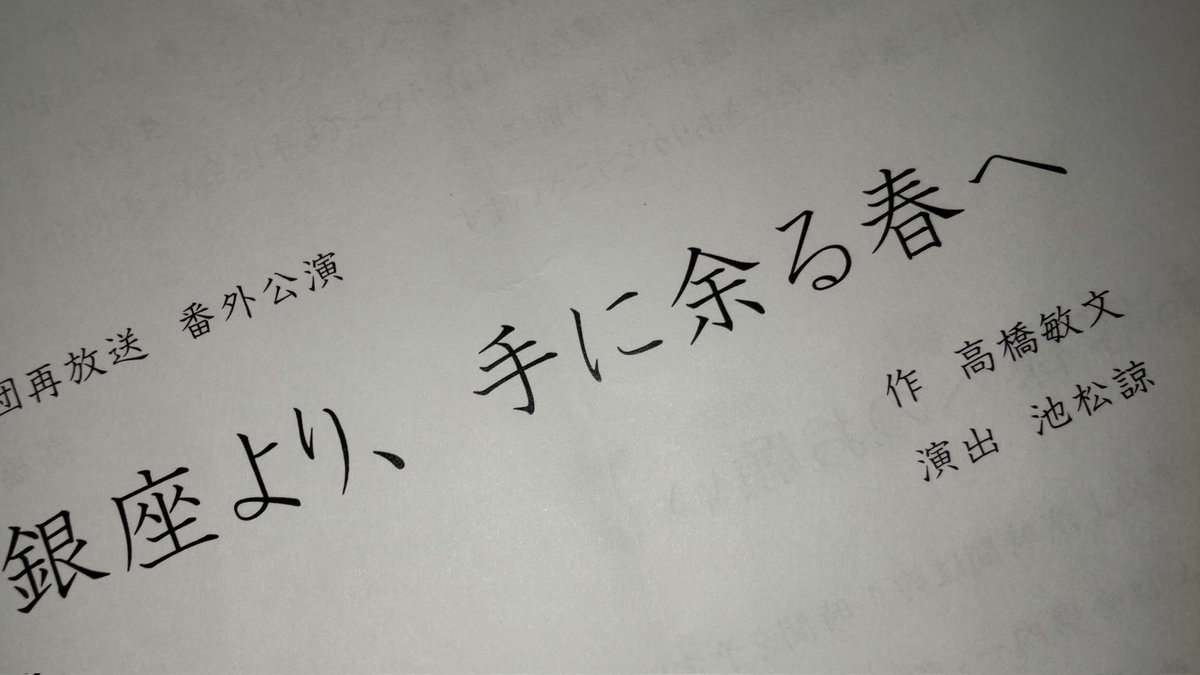 団再放送 番外公演
銀座より、 手に余る春へ
作 高橋敏文
演出 池松諒